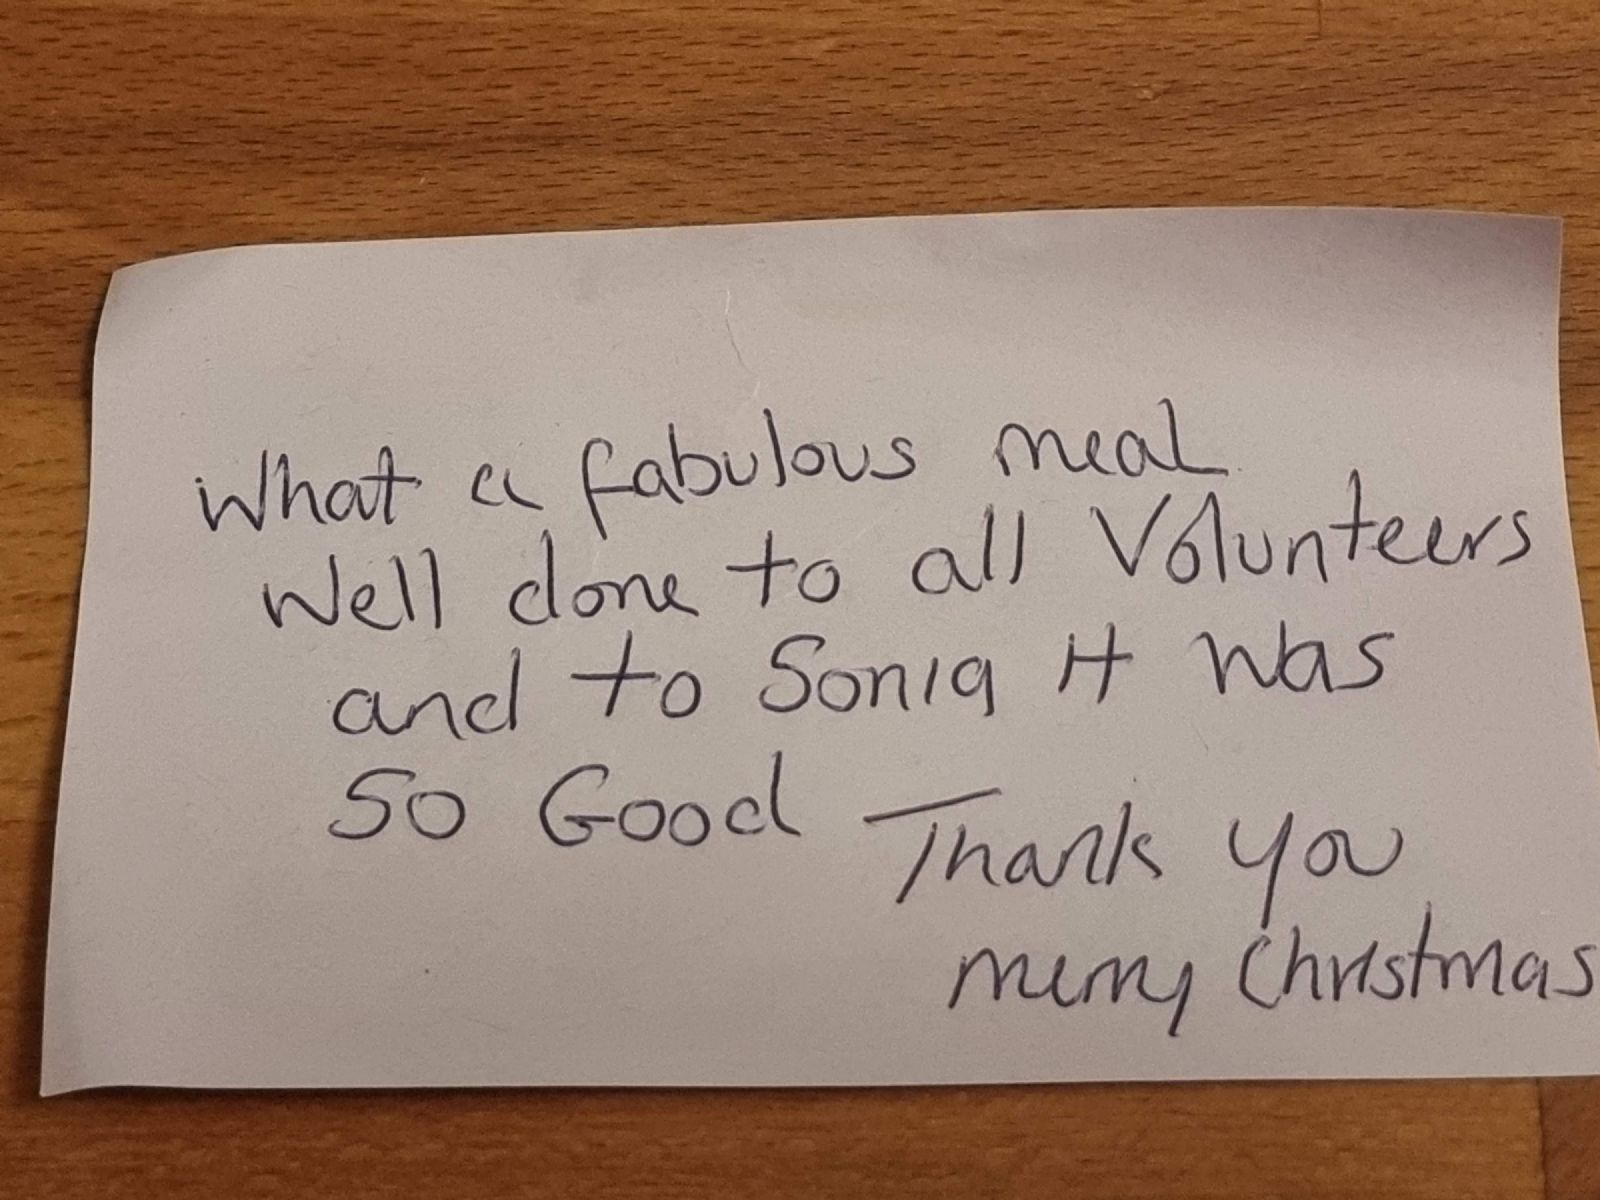 What a fabulous meal
Well done to all Volunteers
and to Sonia It was
So Good Thank you
merry Christmas